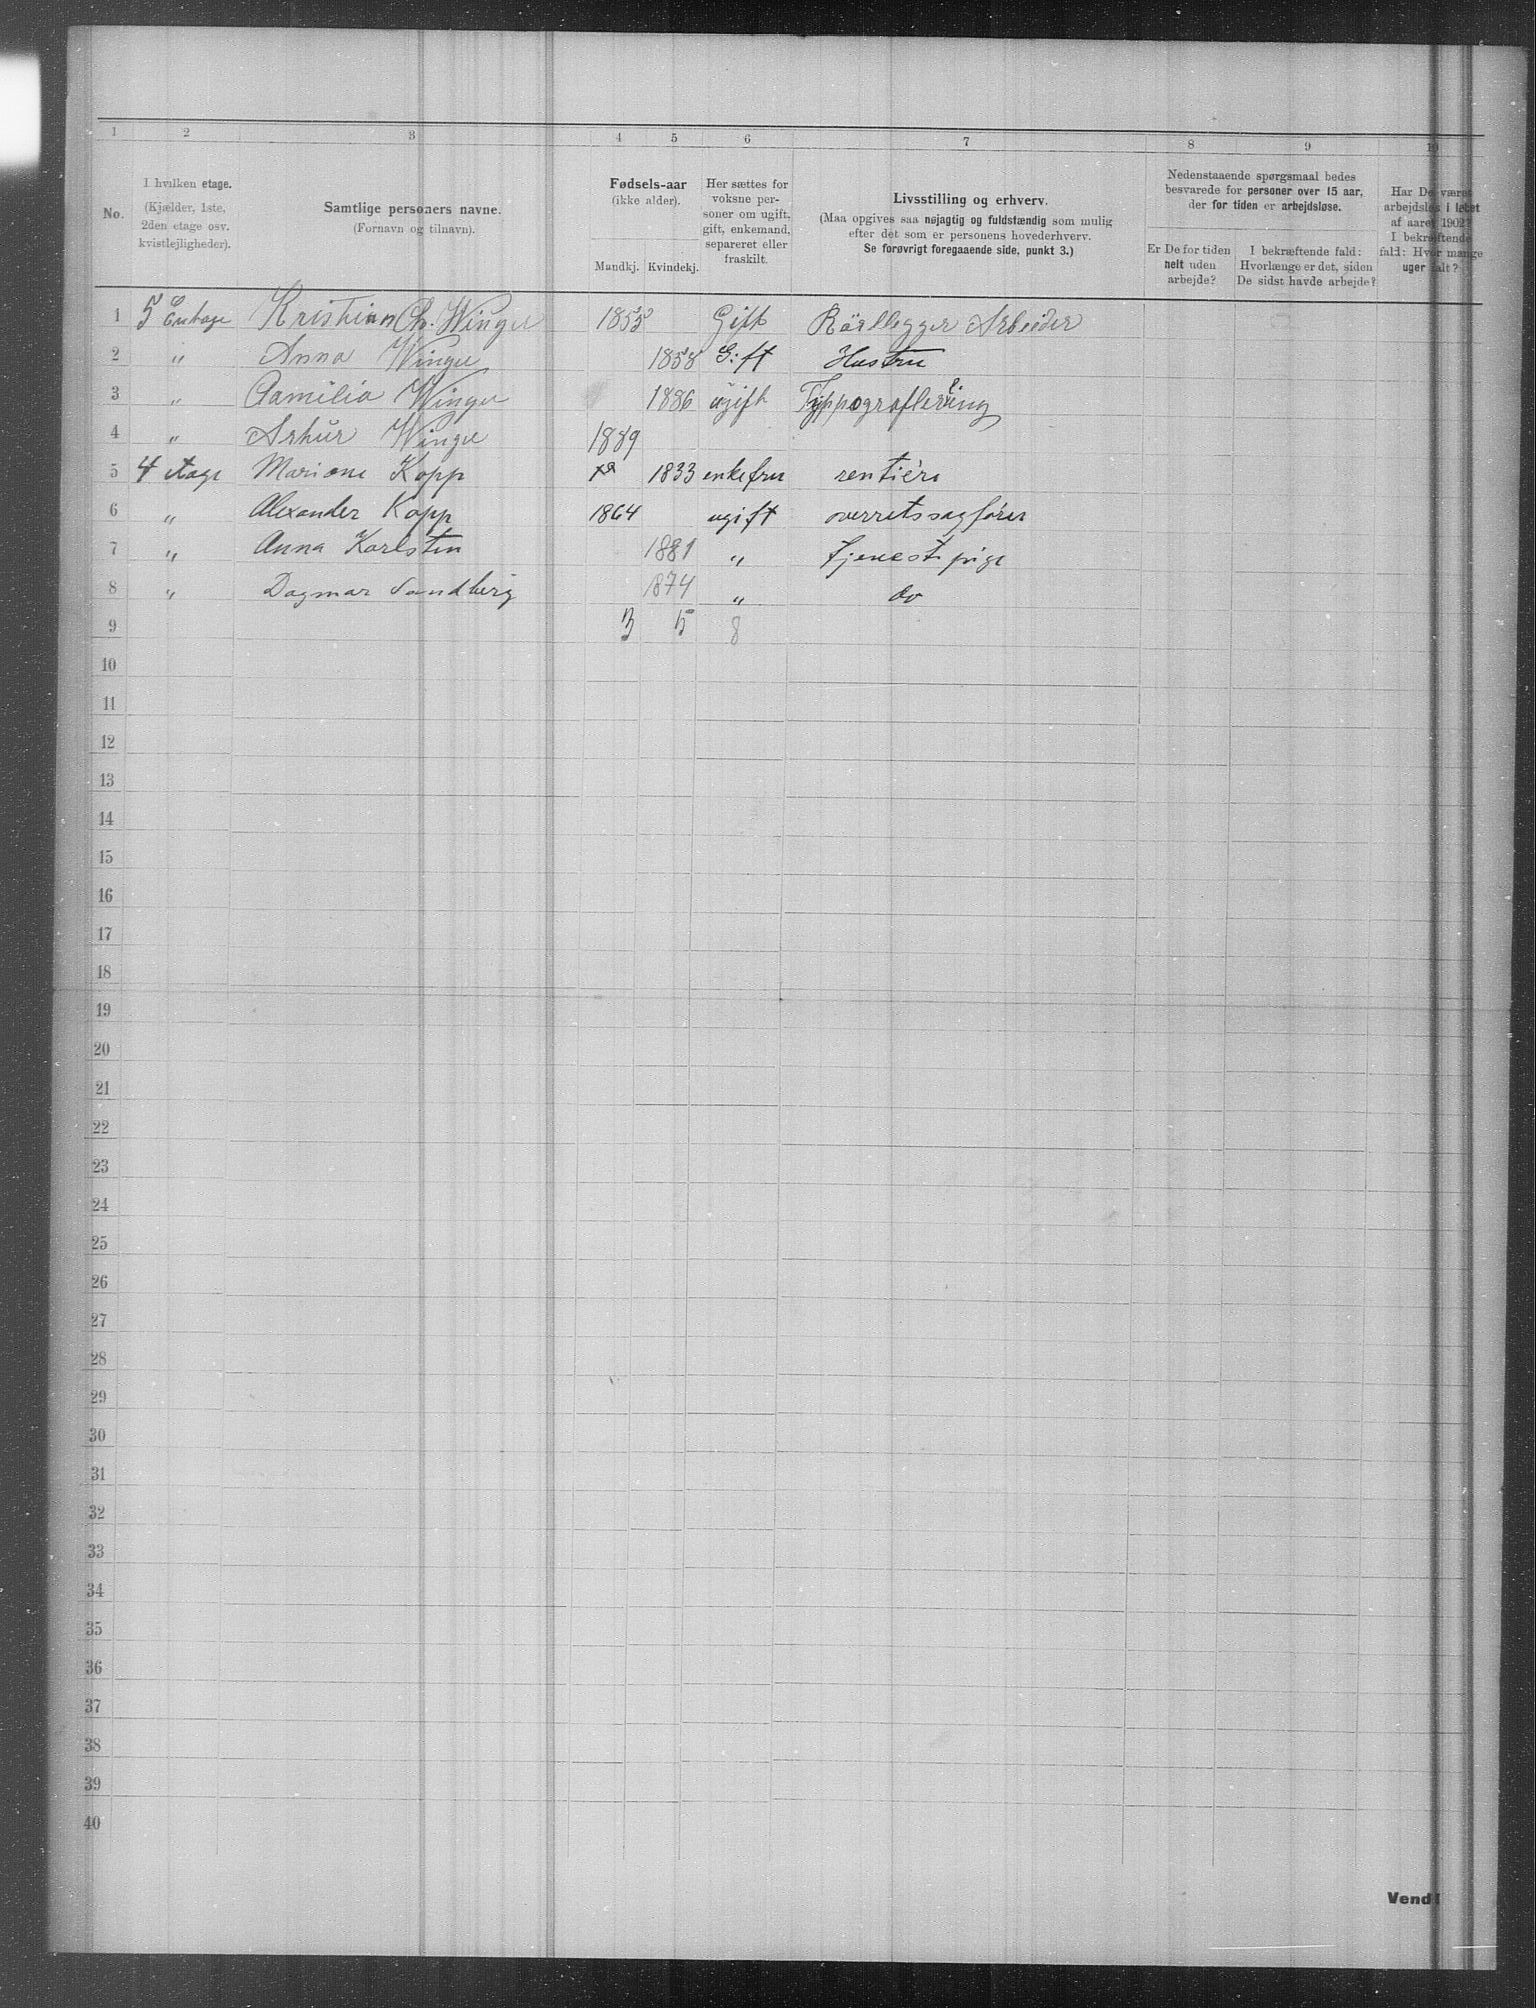 1 2 3 4 5 6 7 8 9 10
No.
I hvilken etage.
(Kjælder, 1ste,
2den etage osv.
kvistlejligheder).
Samtlige personers navne.
(Fornavn og tilnavn).
Fødsels-aar
(ikke alder).
Mandkj. Kvindekj.
Her sættes for
voksne per-
soner om ugift,
gift, enkemand,
separeret eller
fraskilt.
Livsstilling og erhverv.
(Maa opgives saa nøjagtig og fuldstændig som mulig
efter det som er personens hovederhverv.
Se forøvrigt foregaaende side, punkt 3.)
Nedenstaaende spørgsmaal bedes
besvarede for personer over 15 aar,
der for tiden er arbejdsløse.
Er De for tiden
helt uden
arbejde?
I bekræftende fald:
Hvorlænge er det, siden
De sidst havde arbejde?
Har De været
arbejdsløs i løbet
af aaret 1902?
I bekræftende
fald: Hvor mange
uger ialt?
1 5 Kristian Ch. Winger 1855 Gift Rörllegger Arbeider
2 " Anna Winger 1858 Gift Hustru
3 " Camilia Winger 1886 ugift
4 " Arthur Winger 1889
5 4 Etage Mariane Kopp 1833 enkefru rentière
6 " Alexander Kopp 1864 ugift overretssagfører
7 " Anna Karlsten 1881 " tjenestpige
8 " Dagmar Sandberg 1874 " do
9 3 5 8
10
11
12
13
14
15
16
17
18
19
20
21
22
23
24
25
26
27
28
29
30
31
32
33
34
35
36
37
38
39
40
Vend!